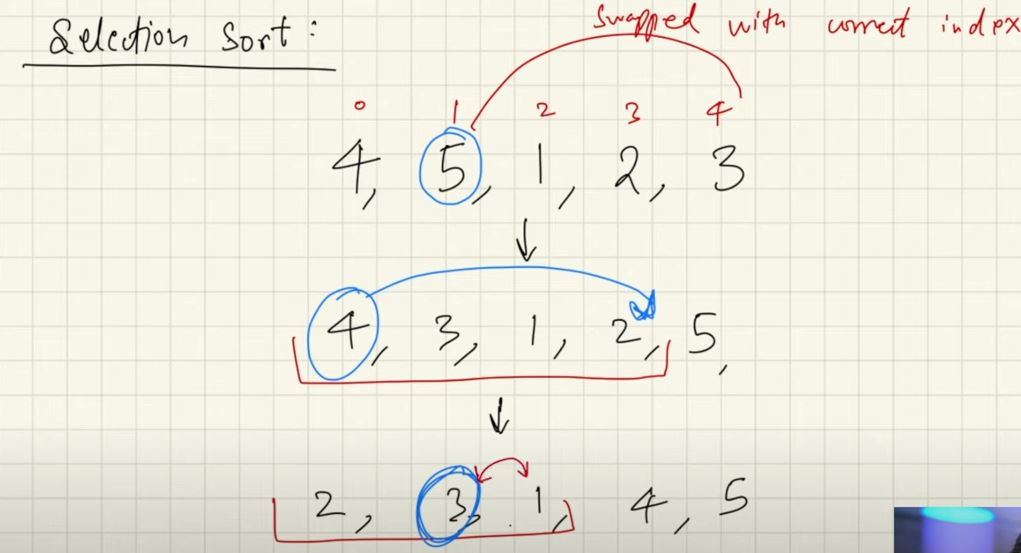 Selection Sort:
Swapped with correct index
0 1 2 3 4
4, 5, 1, 2, 3
4, 3, 1, 2, 5,
2, 3, 1, 4, 5